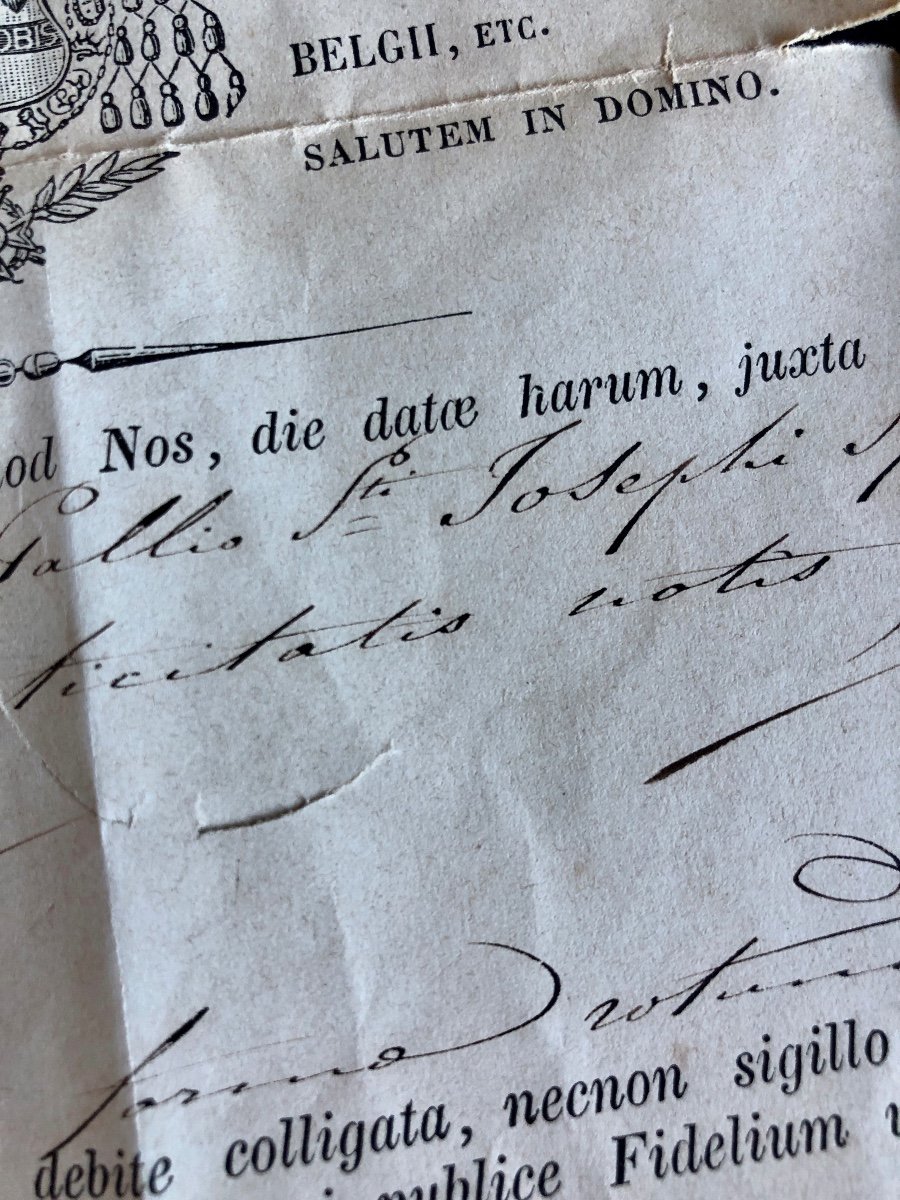 OBIS
BELGII, ETC.
SALUTEM IN DOMINO.
od Nos, die datæ harum, juxta
Pallio Sti Josephi Sp
ticitatis notis
forma rotun
debite colligata, necnon sigillo
publice Fidelium